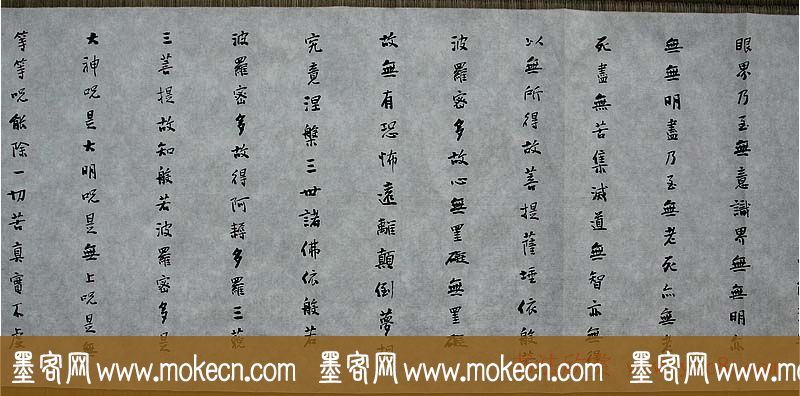 眼界乃至無意識界無無明亦
無無明盡乃至無老死亦無老
死盡無苦集滅道無智亦無得
以無所得故菩提薩埵依般若
波羅密多故心無罣礙無罣礙
故無有恐怖遠離顛倒夢想
究竟涅槃三世諸佛依般若
波羅密多故得阿耨多羅三藐
三菩提故知般若波羅密多是
大神呪是大明呪是無上呪是無
等等呪能除一切苦真實不虛
墨客网 www.mokecn.com 墨客网 www.mokecn.com 墨客网 www.mokecn.com